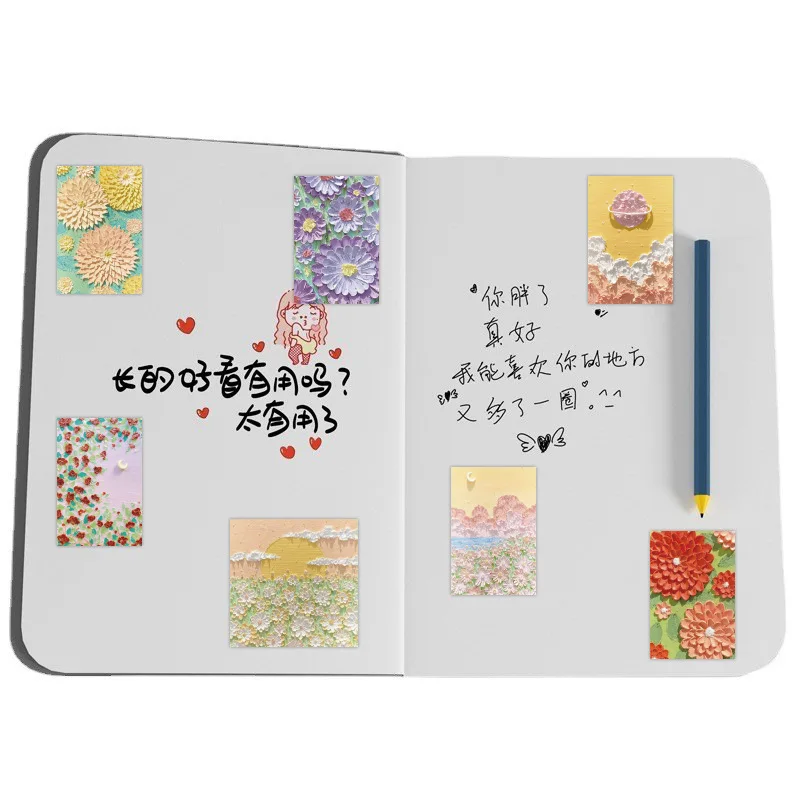 长的好看有用吗？
太有用了
你胖了
真好
我能喜欢你的地方
又多了一圈。^_^